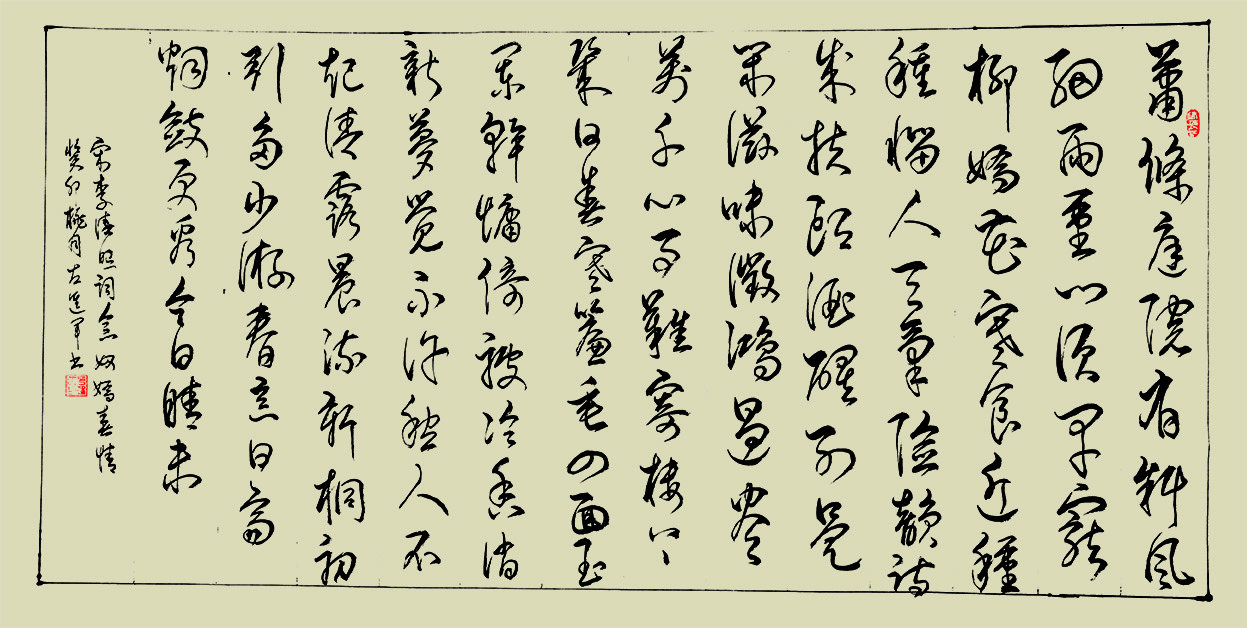 蕭條庭院有斜风
細雨重门須闭寵
柳嬌花寒食近種
種惱人天氣險韻詩
成扶頭酒醒别是
闲滋味徵鴻過盡
萬千心事難寄樓上
幾日春寒簾垂四面玉
闌幹慵倚被冷香消
新夢覺不许愁人不
起清露晨流新桐初
引多少游春意日高
烟斂更看今日晴未
宋李清照词念奴嬌春情
癸卯桃月左军书